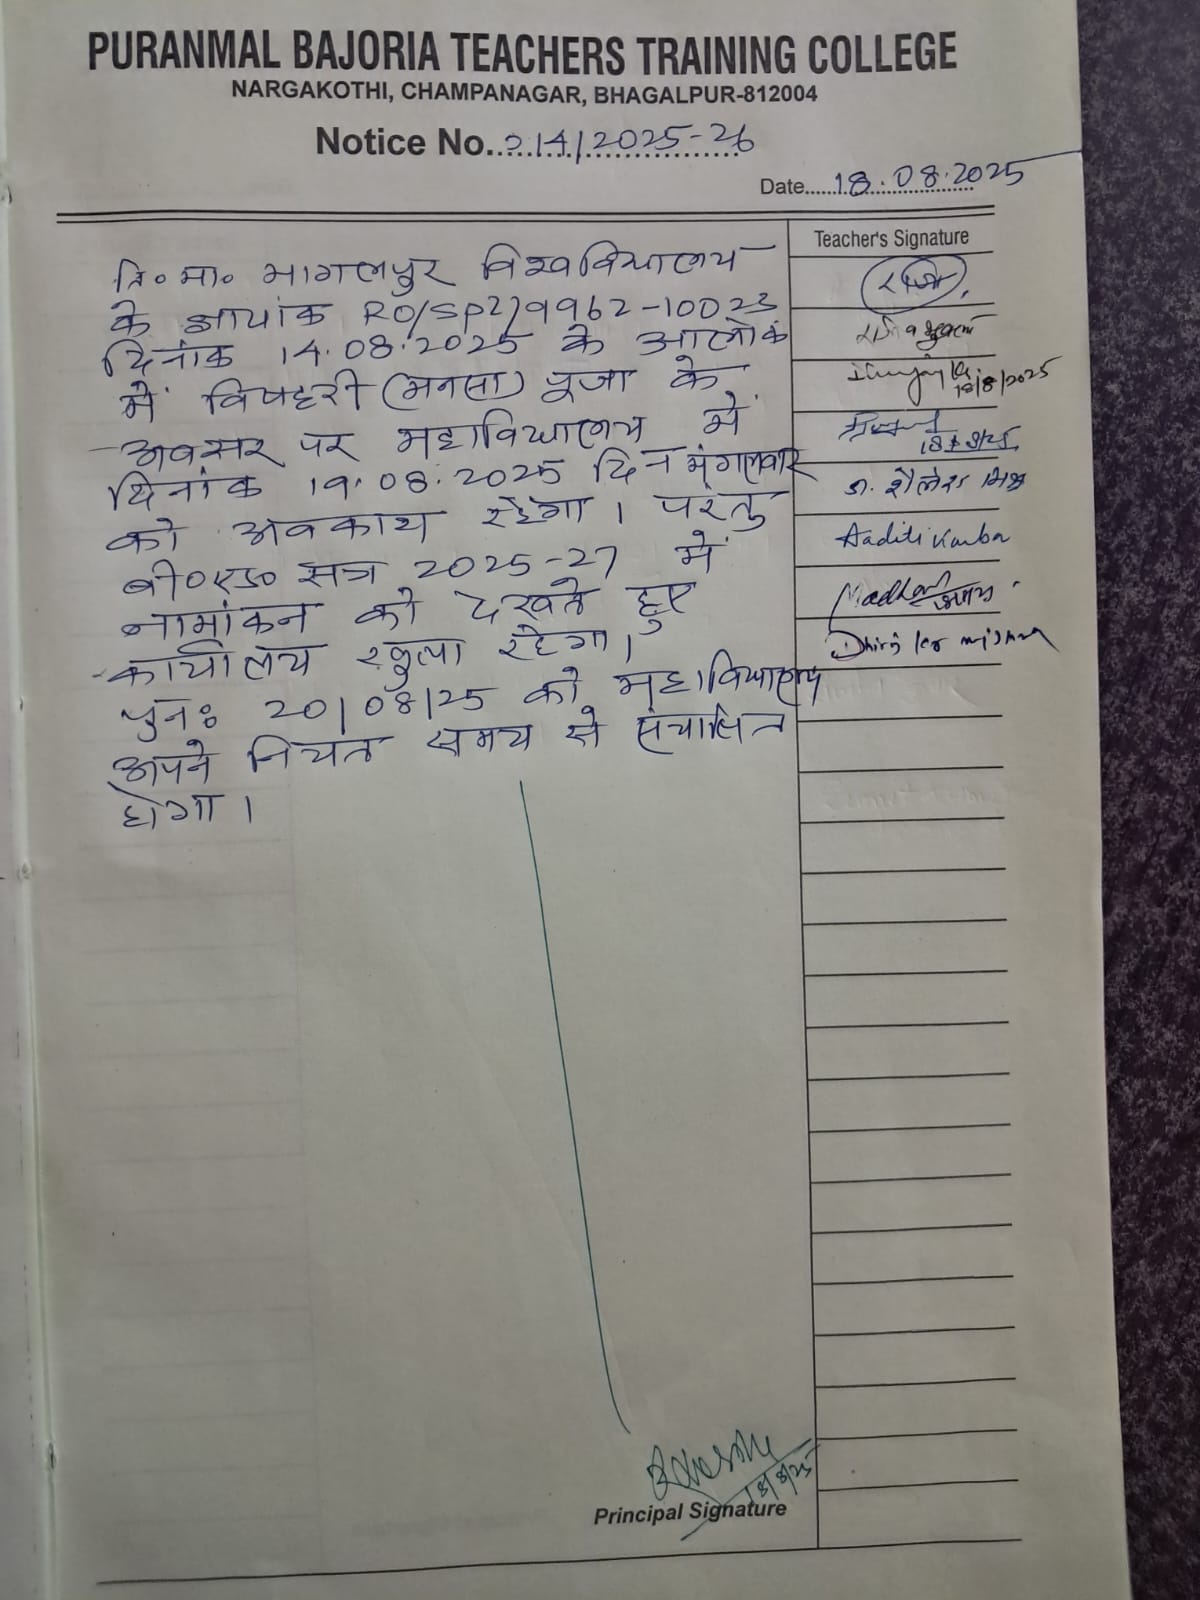 PURANMAL BAJORIA TEACHERS TRAINING COLLEGE
NARGAKOTHI, CHAMPANAGAR, BHAGALPUR-812004
Notice No. 214/2025-26
Date 18.08.2025
ति० मा० भागलपुर विश्वविद्यालय
के ज्ञापांक RO/SP2/9962-10023
दिनांक 14.08.2025 के आलोक
में विषहरी (मनसा) पूजा के
अवसर पर महाविद्यालय में
दिनांक 19.08.2025 दिन मंगलवार
को अवकाश रहेगा। परंतु
बी०एड० सत्र 2025-27 में
नामांकन को देखते हुए
कार्यालय खुला रहेगा।
पुनः 20/08/25 को महाविद्यालय
अपने नियत समय से संचालित
होगा।
Teacher's Signature
18/8/2025
डा. शैलेश मिश्र
Aaditi
Madhav
Dhiraj kr mishra
18/8/25
Principal Signature